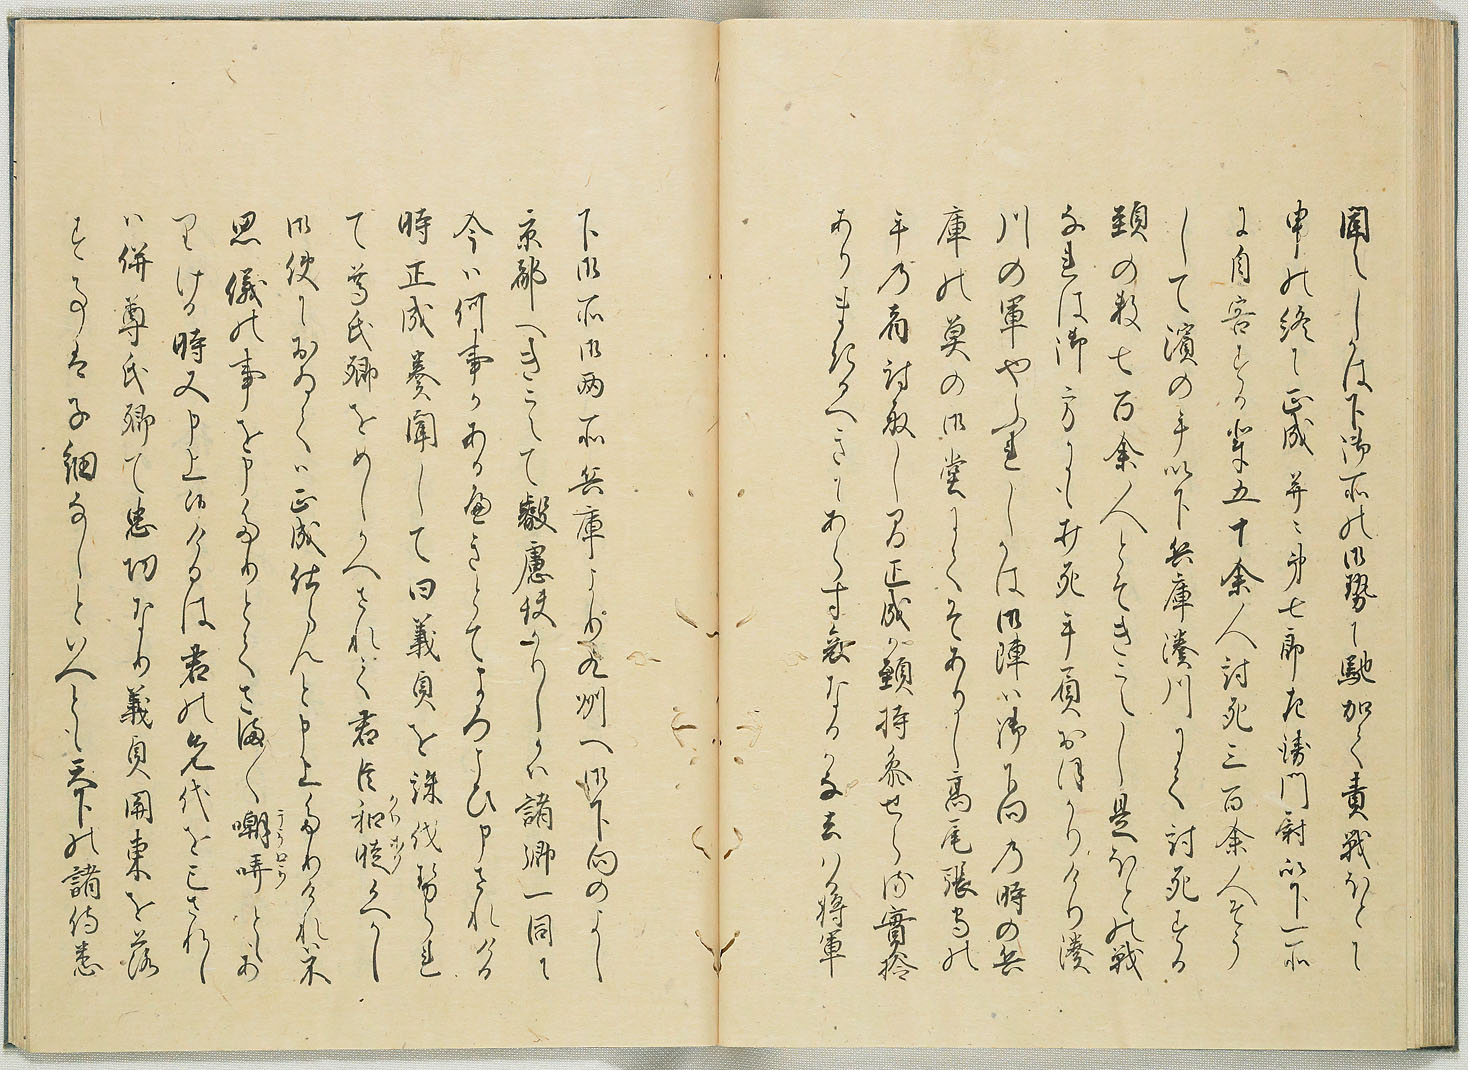 聞えしかは下御所の御勢に馳加て責戦ほとに
申の終に正成并に弟七郎左衛門尉以下一所
に自害する輩五十余人討死三百余人そう
して濱の手以下兵庫湊川にて討死する
頸の数七百余人とそきこえし是ほとの戦
なれは御方にも打死手負おほかりけり湊
川の軍やふれしかは御陣は御下向の時の兵
庫の魚の御堂にてそありし高尾張守の
手の者討取し間正成か頸持参せらる實撿
ありまきるへきにあらす哀なるかな去は将軍
下御所御両所兵庫より九州へ御下向のよし
京都へきこえて叡慮快かりしかは諸卿一同に
今は何事かあるへきとてよろこひ申されける
時正成奏聞して曰義貞を誅伐せられ
て尊氏卿をめしかへされて君臣和睦候へかし
御使にをいては正成仕らんと申上たりけれは不
思儀の事を申たりとてさま〳〵嘲哢ともあ
りける時又申上候けるは君の先代を亡されし
は併尊氏卿て忠功なり義貞関東を落
す事は子細なしといへとも天下の諸侍悉